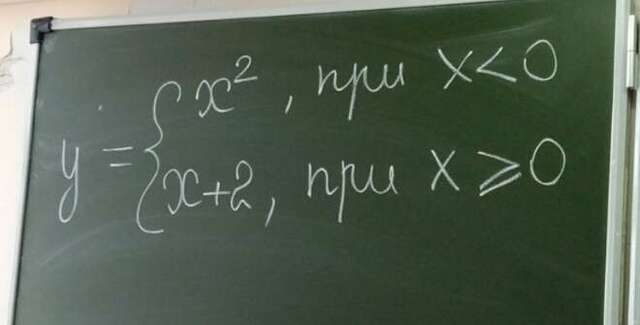 y = { x², при x < 0
x+2, при x ⩾ 0